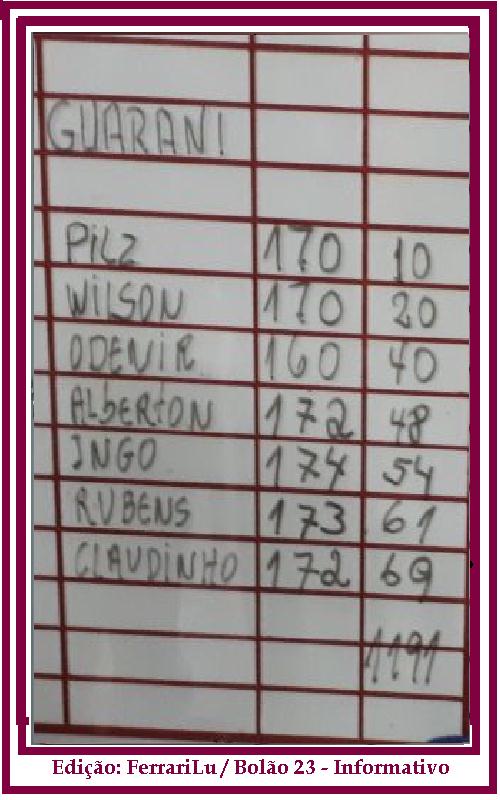 GUARANI
PILZ 170 10
WILSON 170 20
ODENIR 160 40
ALBERTON 172 48
INGO 174 54
RUBENS 173 61
CLAUDINHO 172 69
1191
Edição: FerrariLu / Bolão 23 - Informativo